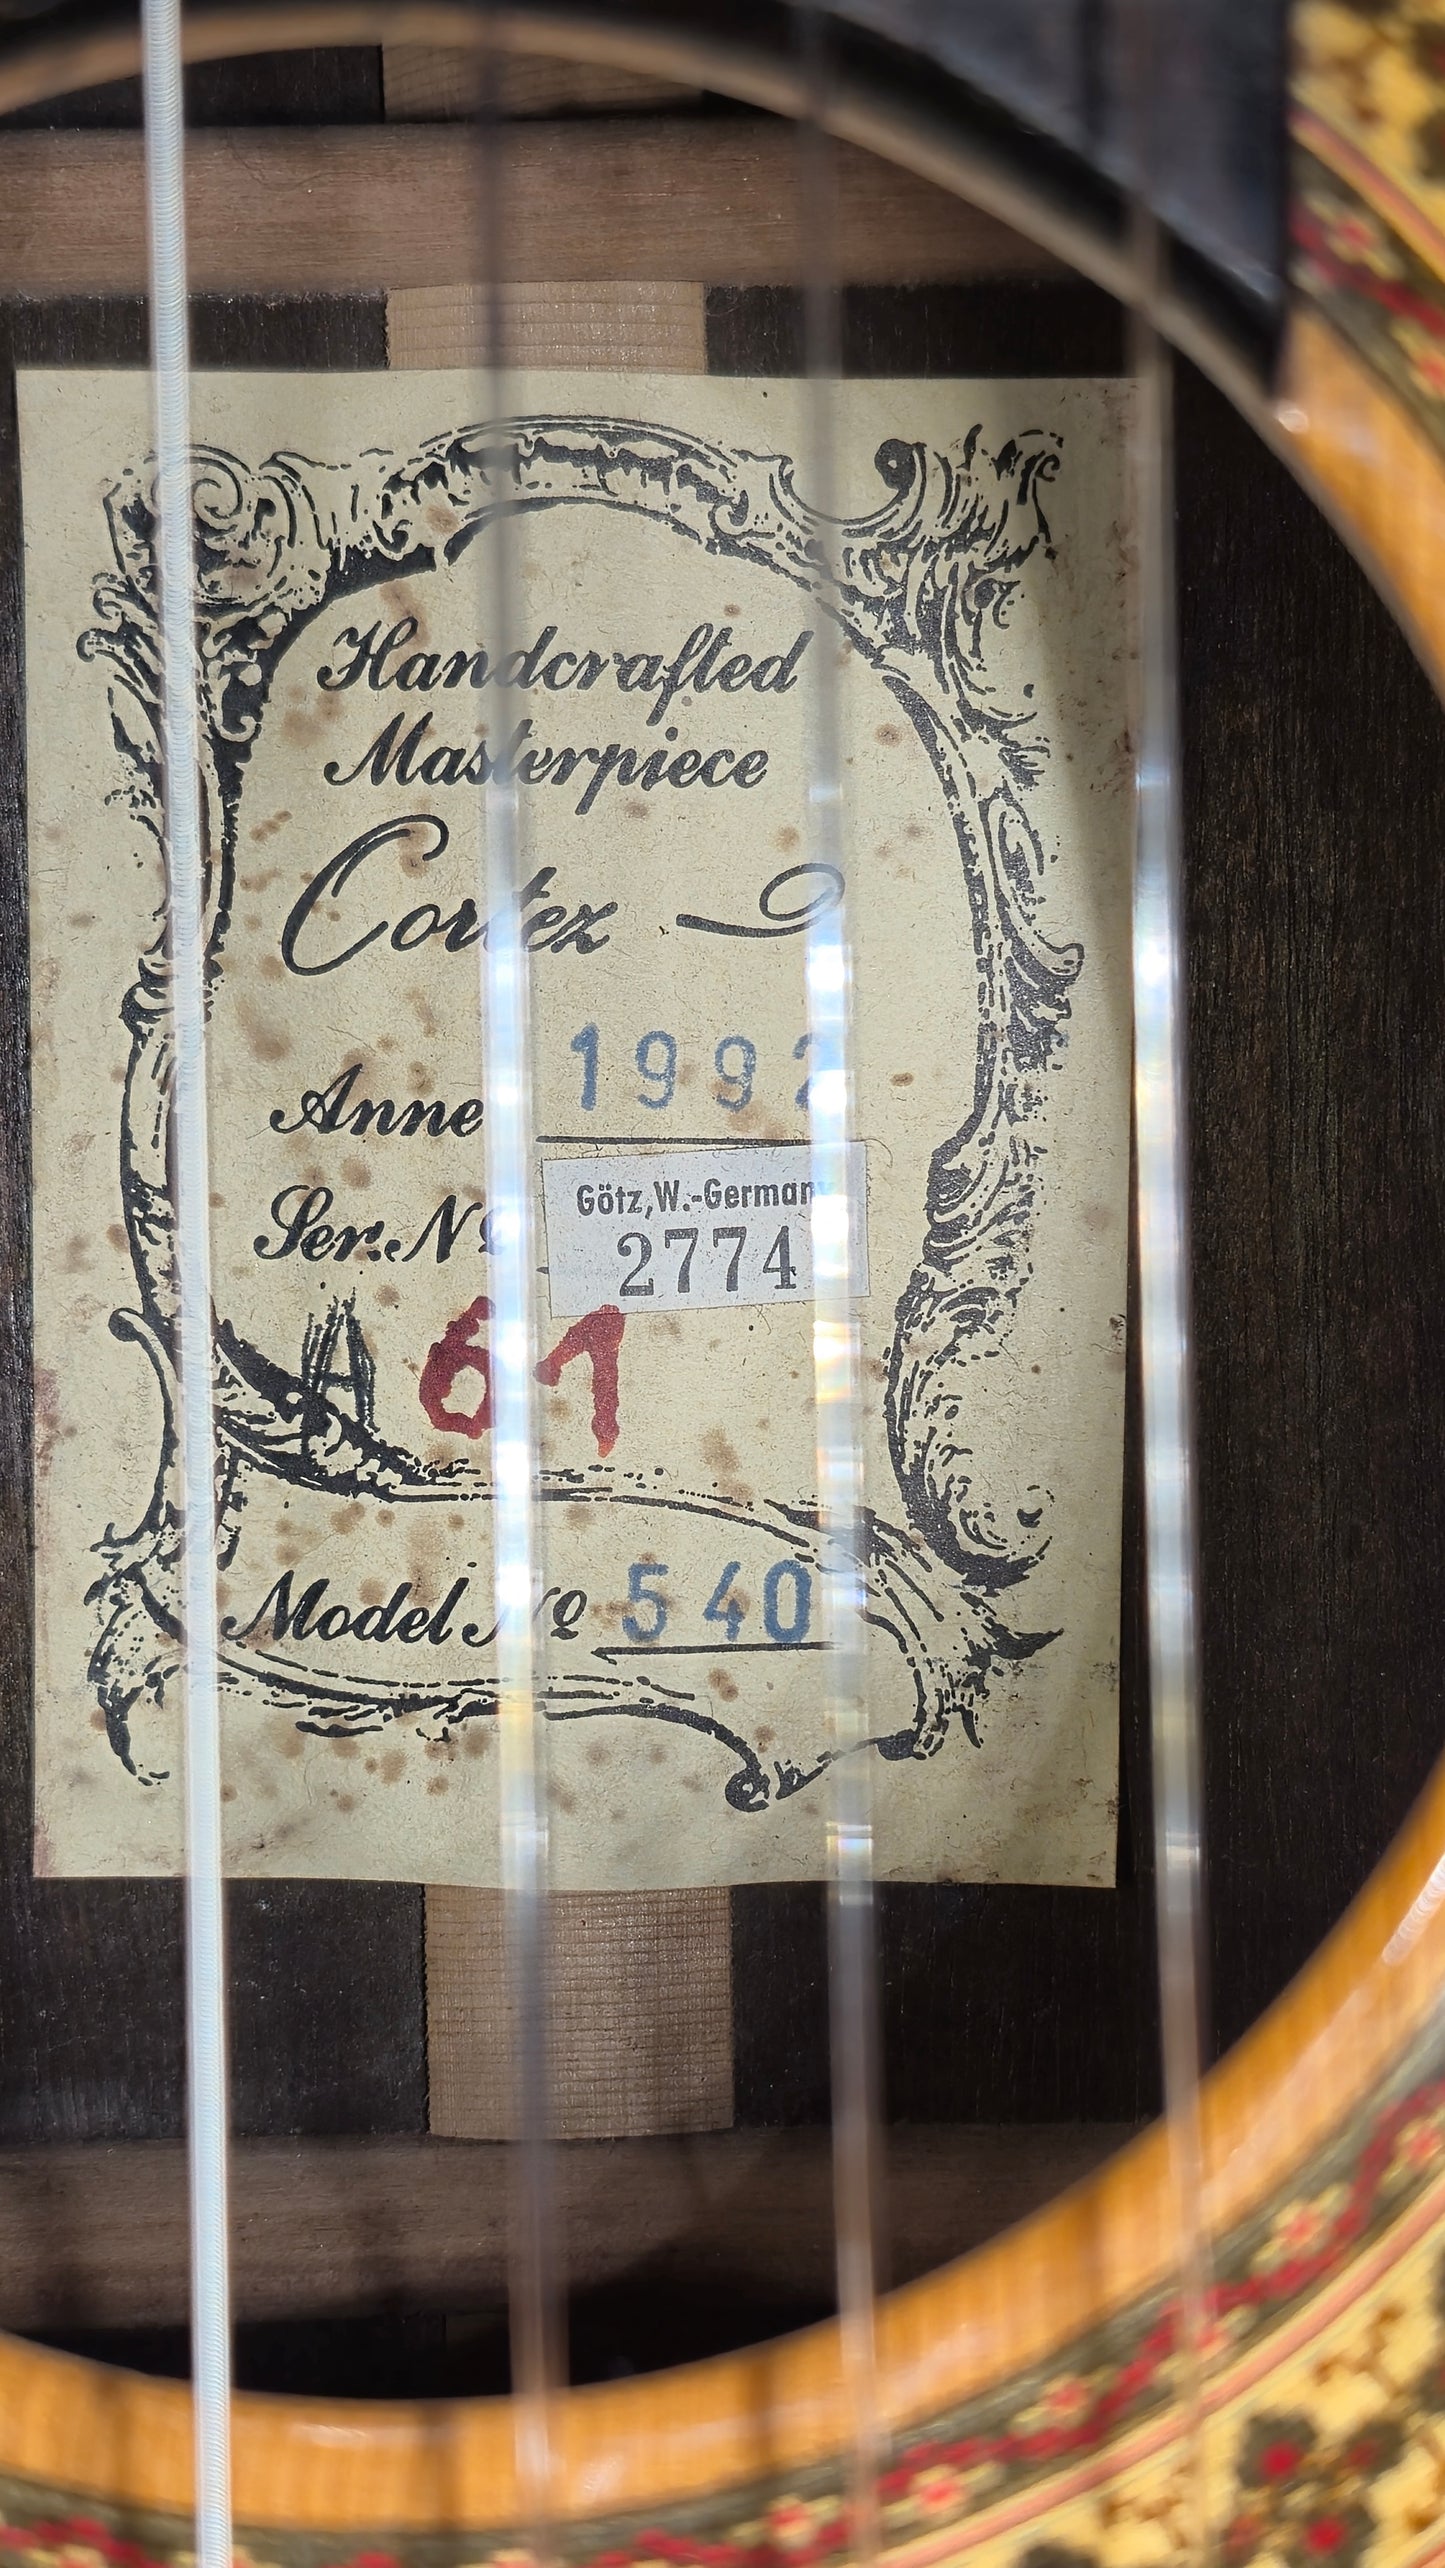 Handcrafted
Masterpiece
Cortez
Anne 1992
Ser. Nº
Götz, W.-Germany
2774
A 61
Model Nº 540